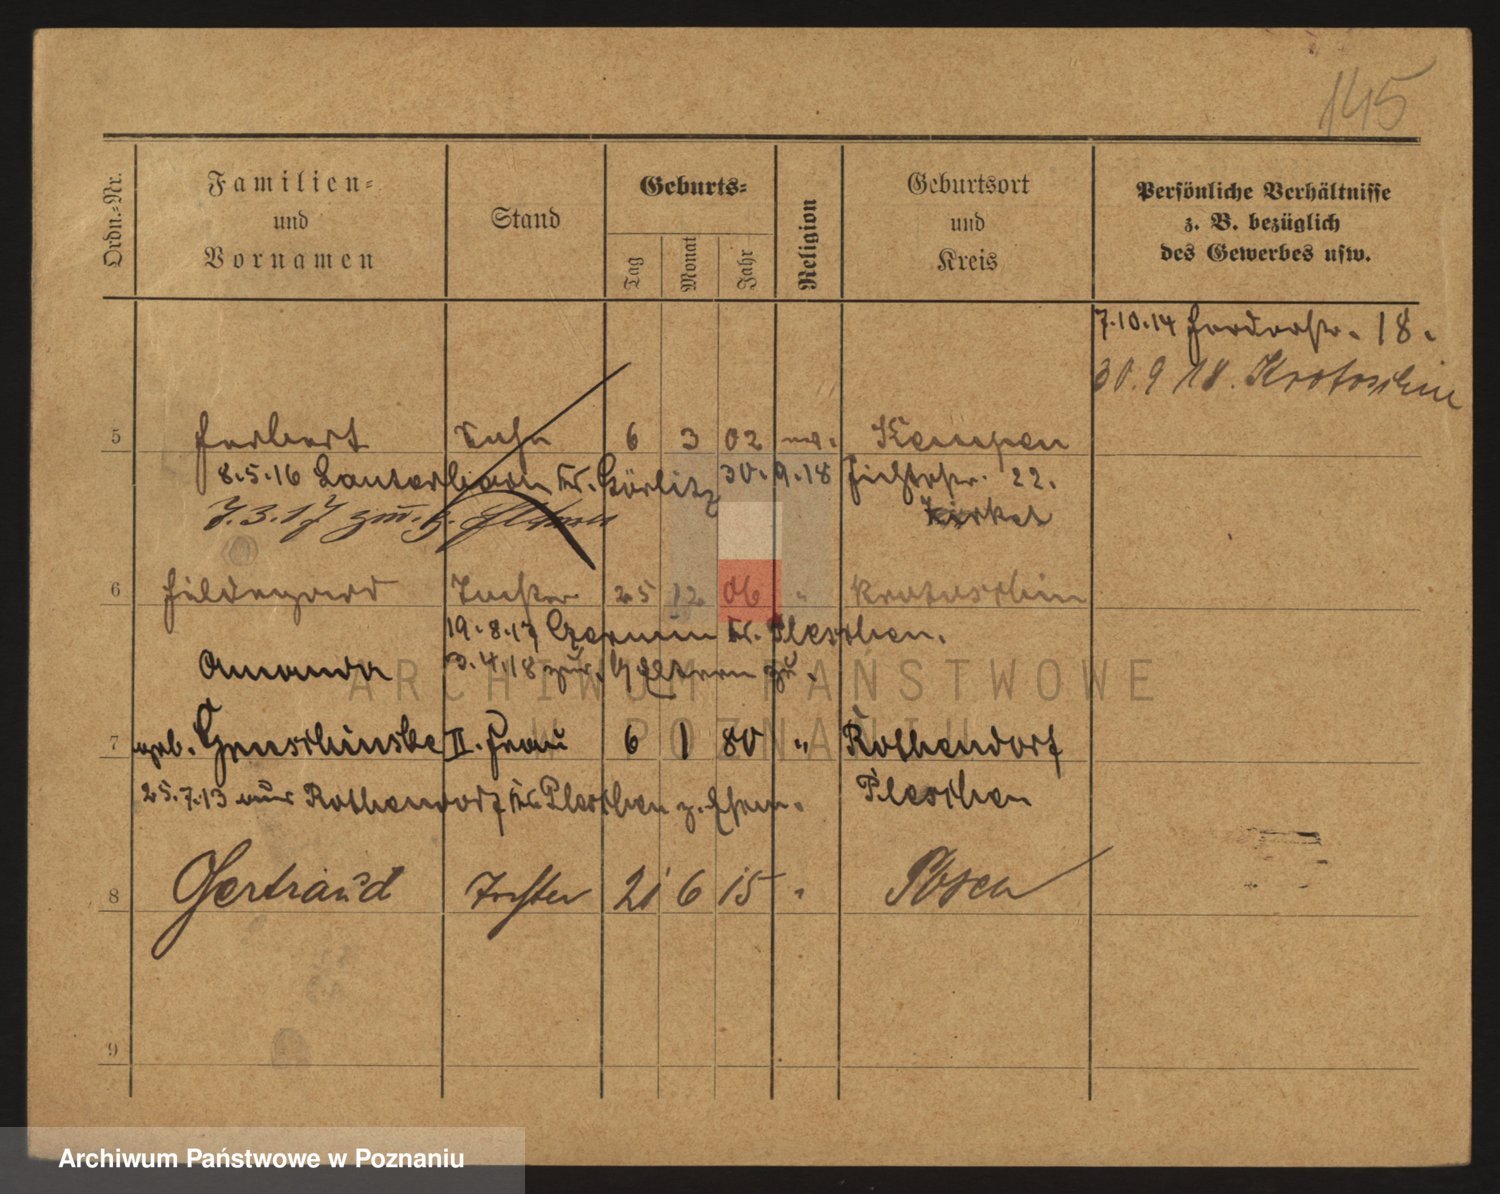 145
Ordn.-Nr.
Familien-
und
Vornamen
Stand
Geburts-
Tag
Monat
Jahr
Religion
Geburtsort
und
Kreis
Persönliche Verhältnisse
z. B. bezüglich
des Gewerbes usw.
7.10.14 18.
30.9.18. Krotoschin
5 Herbert Sohn 6 3 02 ev. Kempen
8.5.16 Lauterbach Kr. Görlitz 30.9.18 Fichtestr. 22.
7.3.17 zu d. Eltern
6 Hildegard Tochter 25 12 06 " Krotoschin
19.8.17 Czermin Kr. Pleschen.
Amanda 3.4.18 zur. Eltern zu.
7 geb. II. Frau 6 1 80 " Rothendorf
25.7.13 aus Rothendorf Kr. Pleschen z. Ehem. Pleschen
8 Gertraud Tochter 21 6 15 " Posen
9
ARCHIWUM PAŃSTWOWE
W POZNANIU
Archiwum Państwowe w Poznaniu